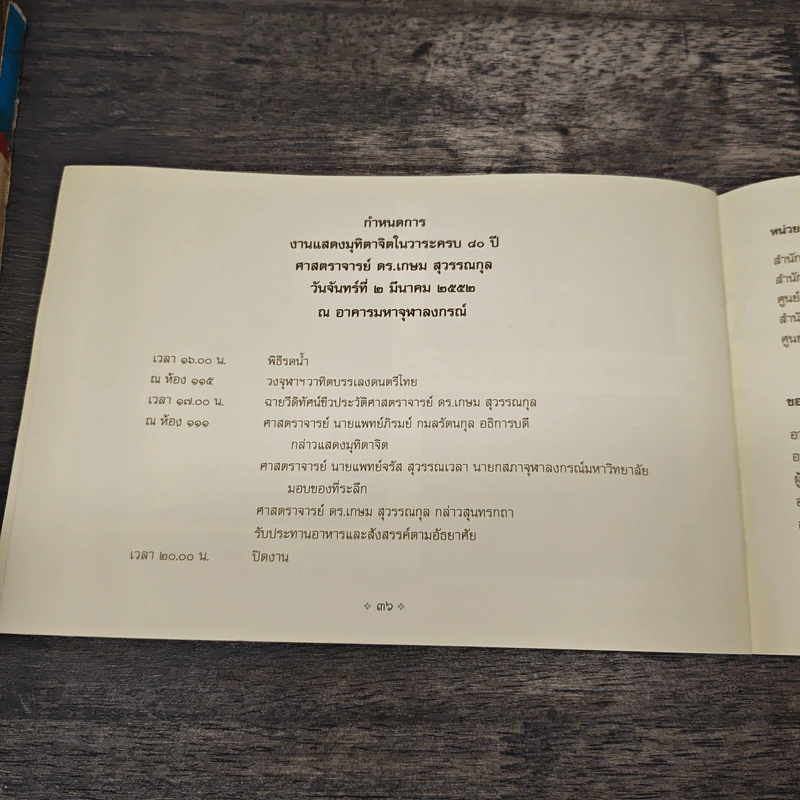 กำหนดการ
งานแสดงมุทิตาจิตในวาระครบ ๘๐ ปี
ศาสตราจารย์ ดร.เกษม สุวรรณกุล
วันจันทร์ที่ ๒ มีนาคม ๒๕๕๒
ณ อาคารมหาจุฬาลงกรณ์
เวลา ๑๖.๐๐ น. พิธีรดน้ำ
ณ ห้อง ๑๑๕ วงจุฬาฯวาทิตบรรเลงดนตรีไทย
เวลา ๑๗.๐๐ น. ฉายวีดิทัศน์ชีวประวัติศาสตราจารย์ ดร.เกษม สุวรรณกุล
ณ ห้อง ๑๑๑ ศาสตราจารย์ นายแพทย์ภิรมย์ กมลรัตนกุล อธิการบดี
กล่าวแสดงมุทิตาจิต
ศาสตราจารย์ นายแพทย์จรัส สุวรรณเวลา นายกสภาจุฬาลงกรณ์มหาวิทยาลัย
มอบของที่ระลึก
ศาสตราจารย์ ดร.เกษม สุวรรณกุล กล่าวสุนทรกถา
รับประทานอาหารและสังสรรค์ตามอัธยาศัย
เวลา ๒๐.๐๐ น. ปิดงาน
๓๖
หน่วย
สำนัก
สำนัก
ศูนย์
สำนัก
ศูนย์